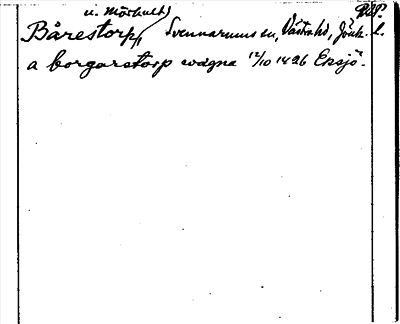 u. Mörhult)
Bårestorp, Svennarums sn, Västra hd, Jönk. l.
a borgarstorp wægna 12/10 1426 Eksjö.